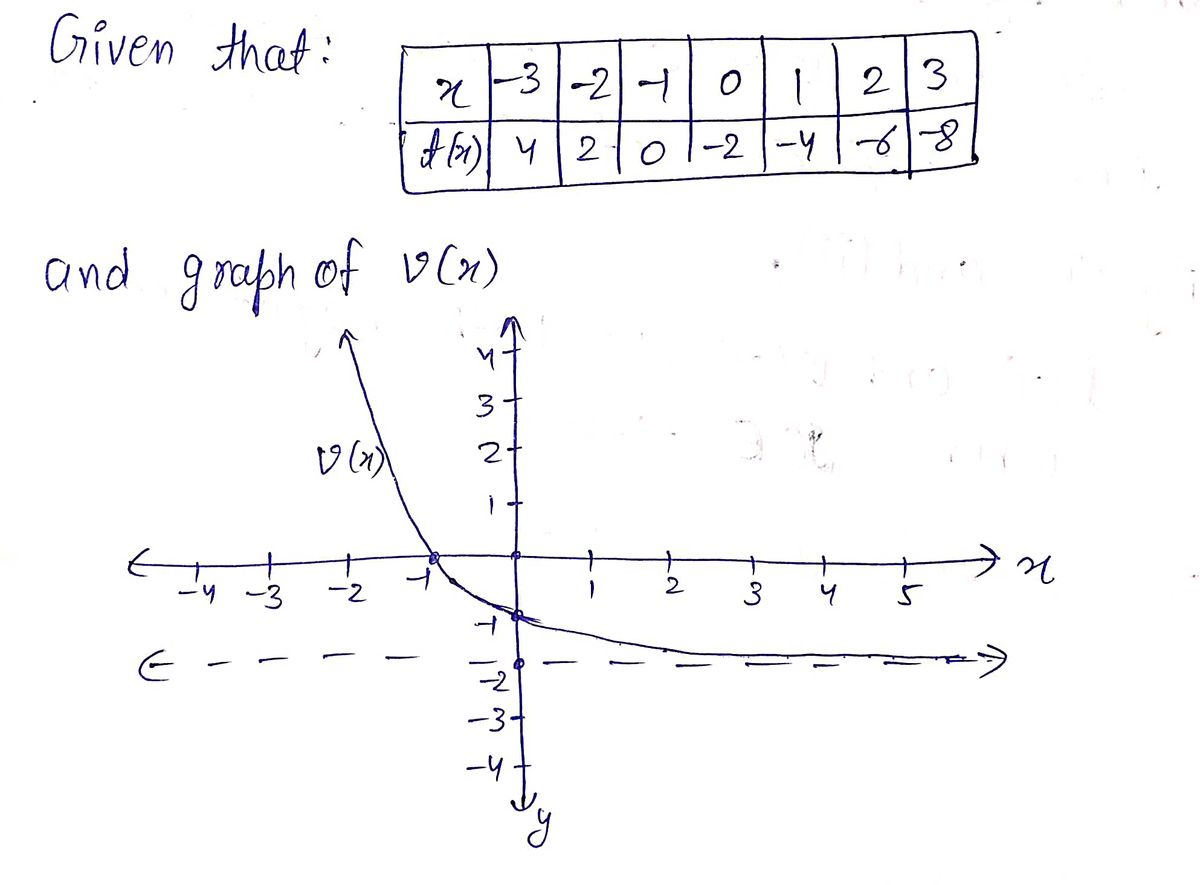 Given that:
x -3 -2 -1 0 1 2 3
t(x) 4 2 0 -2 -4 -6 -8
and graph of v(x)
4
3
v(x) 2
1
-4 -3 -2 -1 1 2 3 4 5 x
-1
-2
-3
-4
y